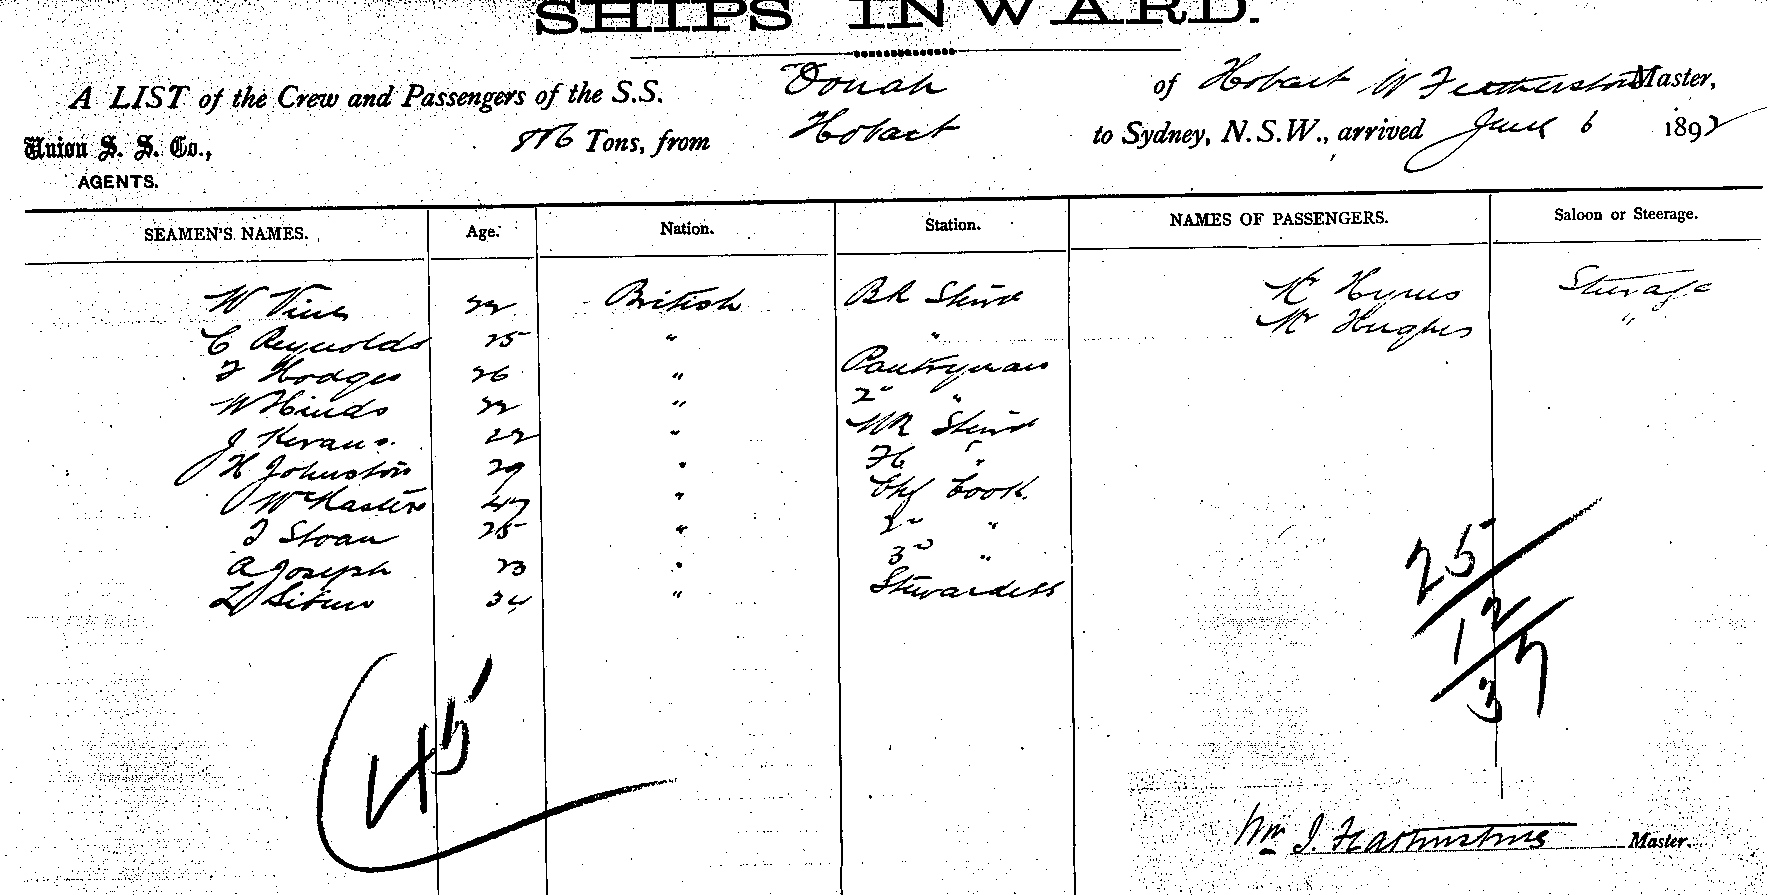 SHIPS INWARD.
A LIST of the Crew and Passengers of the S.S. Oonah of Hobart W Featherstone Master,
Union S. S. Co., Tons, from Hobart to Sydney, N.S.W., arrived June 6 1892
AGENTS.
SEAMEN'S NAMES. Age. Nation. Station. NAMES OF PASSENGERS. Saloon or Steerage.
W Vine 22 British BR Stewd Mr Hynes Steerage
C Reynolds 25 " " Mr Hughes "
F Hodges 26 " Pantryman
W Hinds 22 " 2" "
J Kerans. 22 " Stewd
H Johnston 29 " "
McMasters 47 " Chf Cook
Sloan 25 " 2" "
A Joseph 23 " 3rd "
34 " Stewardess
25
12
37
45
Wm J. Featherstone Master.